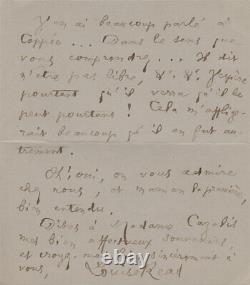 J'en ai beaucoup parlé à
Coppée... Dans le sens que
vous comprendrez... Il dit
n'être pas libre, V. V. J'espère
pourtant qu'il verra qu'il le
peut pourtant ! Cela m'afflige-
rait beaucoup qu'il en fut au-
trement.
Oh ! oui, on vous admire
chez nous, et maman la première,
bien entendu.
Dites à Madame Cazalis
mes bien affectueux souvenirs,
et croyez-moi bien sincèrement à
vous,
Louise Read